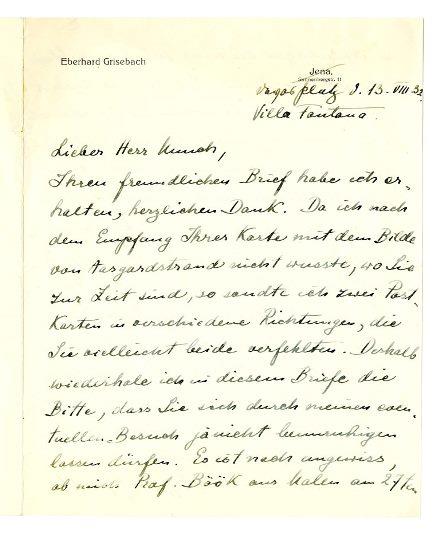 Eberhard Grisebach
Jena,
d. 13. VIII 32
Villa Fontana.
Lieber Herr Munch,
Ihren freundlichen Brief habe ich er-
halten, herzlichen Dank. Da ich nach
dem Empfang Ihrer Karte mit dem Bilde
von Aasgardstrand nicht wusste, wo Sie
zur Zeit sind, so sandte ich zwei Post-
Karten in verschiedene Richtungen, die
Sie vielleicht beide verfehlten. Deshalb
wiederhole ich in diesem Briefe die
Bitte, dass Sie sich durch meinen even-
tuellen Besuch ja nicht beunruhigen
lassen dürfen. Es ist noch ungewiss,
ob mich Prof. Böök aus Malen am 27ten